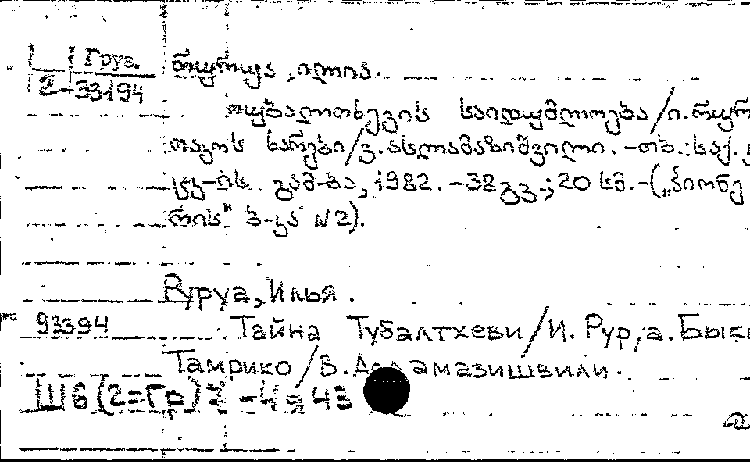 Груз.
2-33194
რურუა, ილია.
თუბალთხევის საიდუმლოება/ი. რურ
თაკოს ხარები/ვ. ასლამაზიშვილი. -თბ.: საქ. კ
ცკ-ის გამ-ბა, 1982. -32 გვ.; 20 სმ. -(„პიონე
რის" ბ-კა N2).
Руруа, Илья.
93394
Тайна Тубалтхеви/И. Рур,а. Быки
Тамрико/В. амазишвили.
Ш6(2=Гр)7 -4я43